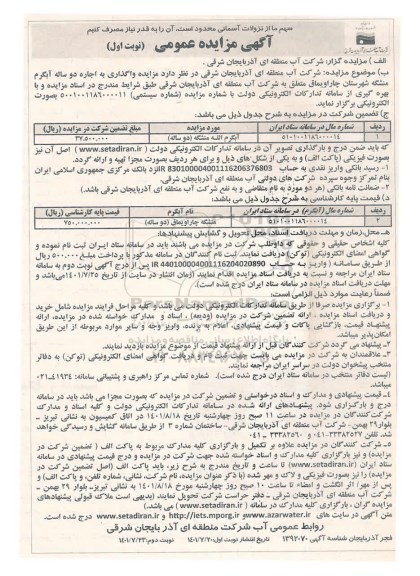 سهم ما از نزولات آسمانی محدود است، آن را به قدر نیاز مصرف کنیم
آگهی مزایده عمومی (نوبت اول)
الف) مزایده گزار: شرکت آب منطقه ای آذربایجان شرقی.
ب) موضوع مزایده: شرکت آب منطقه ای آذربایجان شرقی در نظر دارد مزایده واگذاری به اجاره دو ساله آبگرم
متشگه شهرستان چاراویماق متعلق به شرکت آب منطقه ای آذربایجان شرقی طبق شرایط مندرج در اسناد مزایده و با
بهره گیری از سامانه تدارکات الکترونیکی دولت با شماره مزایده (شماره سیستمی)
الکترونیکی برگزار نماید.
ج) تضمین شرکت در مزایده به شرح جدول ذیل می باشد:
ردیف شماره مال در سامانه ستاد ایران مورد مزایده مبلغ تضمین شرکت در مزایده (ریال)
۱ آبگرم اللسه متشگه (دو ساله) ۳۷,۵۰۰,۰۰۰
که باید ضمن درج و بارگذاری تصویر آن در سامانه تدارکات الکترونیکی دولت (www.setadiran.ir) اصل آن نیز
بصورت فیزیکی (پاکت الف) و به یکی از شکل های ذیل و برای هر ردیف بصورت مجزا تهیه و ارائه گردد.
۱- رسید بانکی واریز نقدی به حساب IR 830100004001116206376803 نزد بانک مرکزی جمهوری اسلامی ایران
بنام تمرکز وجوه سپرده شرکت های دولتی آب منطقه ای آذربایجان شرقی
۲- ضمانت نامه بانکی (هر دو مورد به نام متقاضی و به نفع شرکت آب منطقه ای آذربایجان شرقی باشد.)
د) قیمت پایه کارشناسی به شرح جدول ذیل می باشد:
ردیف شماره مال (آبگرم) در سامانه ستاد ایران نام آبگرم قیمت پایه کارشناسی (ریال)
متشگه چاراویماق (دو ساله) ۷۵۰,۰۰۰,۰۰۰
هـ- محل، زمان و مهلت دریافت اسناد، محل تحویل و گشایش پیشنهادها:
کلیه اشخاص حقیقی و حقوقی که داوطلب شرکت در مزایده می باشند باید در سامانه ستاد ایران ثبت نام نموده و
گواهی امضای الکترونیکی (توکن) دریافت نمایند. ثبت نام کنندگان در سامانه مذکور با پرداخت مبلغ ۵۰۰,۰۰۰ ریال
از طریق سامانه (واریز به حساب IR 440100004001116204020890 پس از درج آگهی نوبت دوم به سامانه
ستاد ایران مراجعه و نسبت به دریافت اسناد مزایده اقدام نمایند (زمان انتشار در سایت از تاریخ ۱۴۰۱/۷/۲۵ می باشد و
مهلت دریافت اسناد مزایده در سامانه ستاد ایران درج شده است).
ضمناً رعایت موارد ذیل الزامی است:
۱- برگزاری مزایده صرفاً از طریق سامانه تدارکات الکترونیکی دولت می باشد و کلیه مراحل فرایند مزایده شامل خرید
و دریافت اسناد مزایده، ارائه تضمین شرکت در مزایده (ودیعه)، اسناد و مدارک خواسته شده در مزایده، ارائه
پیشنهاد قیمت، بازگشایی پاکات و قیمت پیشنهادی، اعلام به برنده، واریز وجه و سایر موارد مربوطه از این طریق
امکان پذیر میباشد.
۲- پیشنهاد می گردد شرکت کنندگان قبل از ارائه پیشنهاد قیمت از موضوع مزایده بازدید نمایند.
۳- علاقمندان به شرکت در مزایده می بایست جهت ثبت نام و دریافت گواهی امضای الکترونیکی (توکن) به دفاتر
منتخب پیشخوان دولت در سراسر ایران مراجعه نمایند.
(لیست دفاتر منتخب در سامانه ستاد ایران درج شده است). شماره تماس مرکز راهبری و پشتیبانی سامانه: ۴۱۹۳۴-۰۲۱
میباشد.
۴- قیمت پیشنهادی و مدارک و اسناد درخواستی و تضمین شرکت در مزایده که بصورت مجزا می باشد باید در سامانه
درج و بارگزاری شود. پیشنهادهای ارائه شده در سامانه تدارکات الکترونیکی دولت و کلیه اسناد و مدارک
شرکت کنندگان در مزایده در ساعت ۱۱ صبح روز چهارشنبه تاریخ ۱۴۰۱/۸/۱۸ در اتاق کمیسیون به نشانی تبریز -
بلوار ۲۹ بهمن - شرکت آب منطقه ای آذربایجان شرقی- ساختمان شماره ۳ از طریق سامانه گشایش و رسیدگی خواهد
شد.
۵- شرکت کنندگان در مزایده علاوه بر تکمیل و بارگزاری کلیه مدارک مربوط به پاکت الف (تضمین شرکت در
مزایده) و نیز بارگزاری کلیه مدارک و اسناد خواسته شده جهت شرکت در مزایده و درج قیمت پیشنهادی در سامانه
ستاد ایران (www.setadiran.ir) تا ساعت و تاریخ مندرج به شرح زیر، باید پاکت الف (اصل تضمین شرکت در
مزایده) را نیز بصورت فیزیکی و لاک و مهر شده (با ذکر عنوان مزایده، نام شرکت، نشانی، شماره تلفن، و پاکت الف) و
پس از مهر، اثر انگشت و امضاء تا ساعت ۱۰ صبح روز چهارشنبه مورخ ۱۴۰۱/۸/۱۸ به نشانی تبریز- بلوار ۲۹ بهمن -
شرکت آب منطقه ای آذربایجان شرقی- دفتر حراست شرکت تحویل نمایند (بدیهی است ملاک قبولی پیشنهادهای
مزایده گران، بارگزاری کلیه مدارک در سامانه (www.setadiran.ir) می باشد).
متن آگهی در سایت های www.azarwater.ir و http://iets.mporg.ir و www.setadiran.ir درج شده است.
روابط عمومی آب شرکت منطقه ای آذر بایجان شرقی
فجر آذربایجان شناسه آگهی: ۱۳۹۲۰۷۰ تاریخ انتشار نوبت اول: ۱۴۰۱/۷/۲۰ نوبت دوم: ۱۴۰۱/۷/۲۳